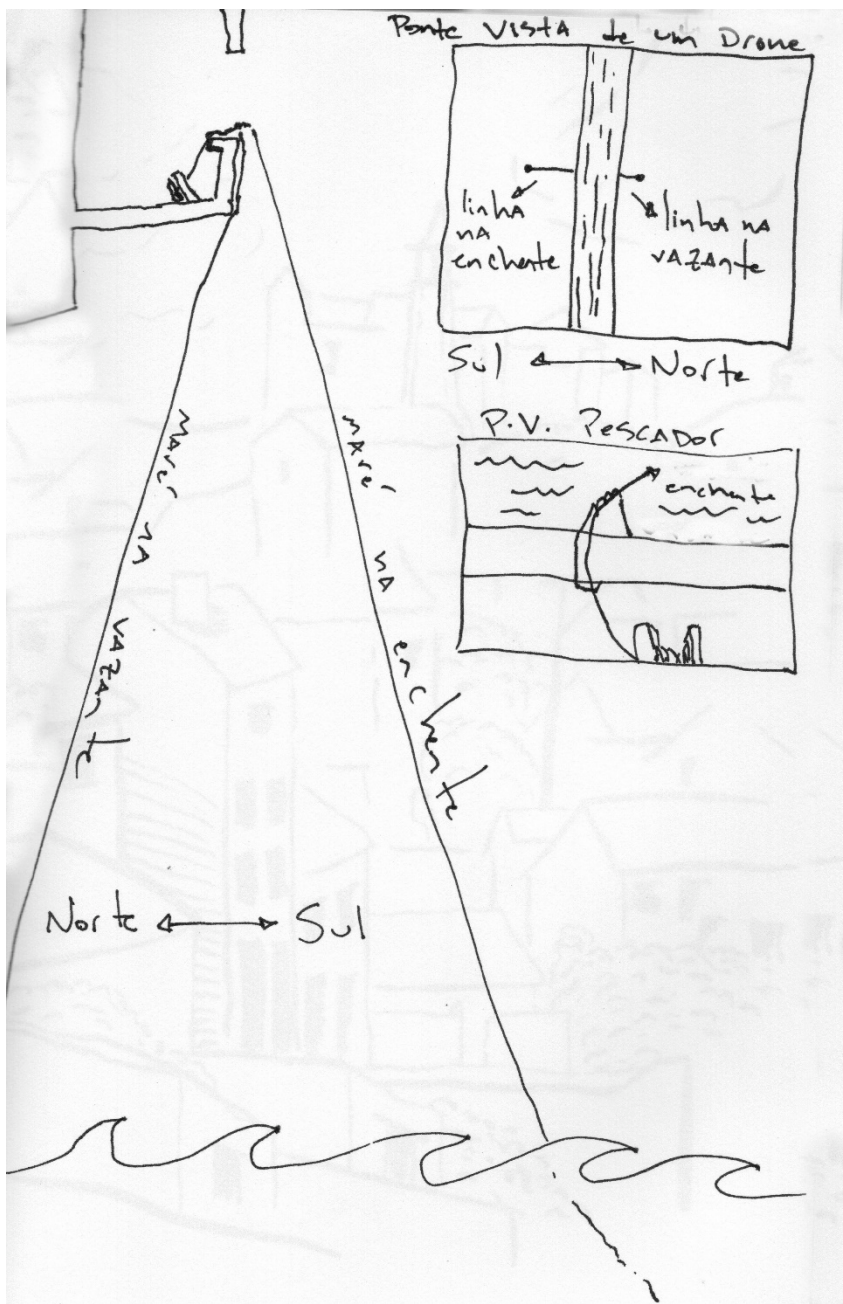 Ponte Vista de um Drone
linha
na
enchente
linha na
vazante
Sul Norte
P.V. Pescador
enchente
maré na vazante
maré na enchente
Norte Sul